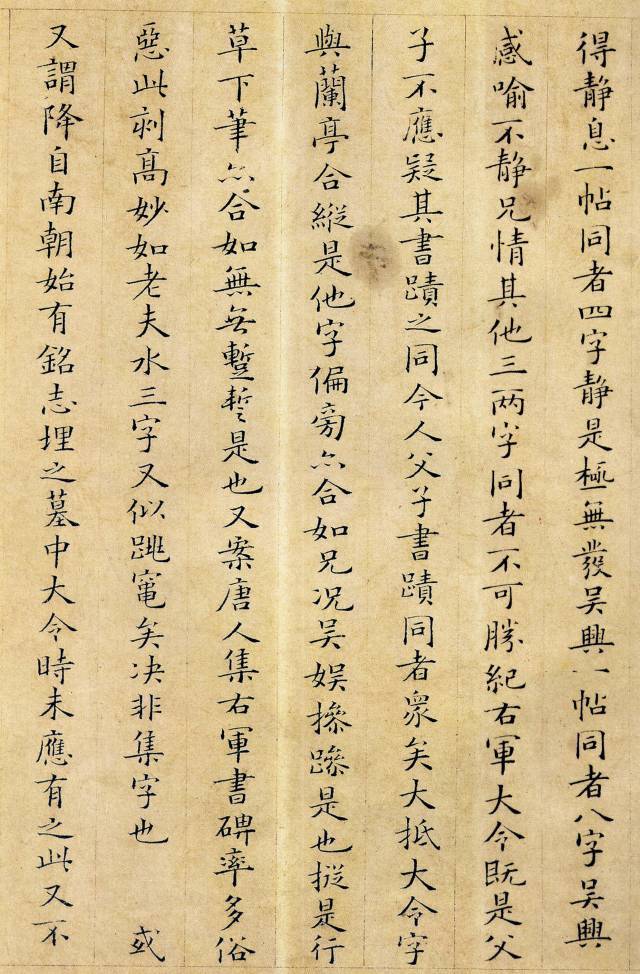 得静息一帖同者四字静是極無發吴興一帖同者八字吴興
感喻不静兄情其他三两字同者不可勝紀右軍大令既是父
子不應疑其書蹟之同今人父子書蹟同者衆矣大抵大令字
與蘭亭合縱是他字偏旁亦合如兄况吴娱摻蹤是也挺是行
草下筆亦合如無無蹔誓是也又案唐人集右軍書碑率多俗
惡此刻高妙如老夫水三字又似跳竃矣决非集字也 或
又謂降自南朝始有銘志埋之墓中大令時未應有之此又不